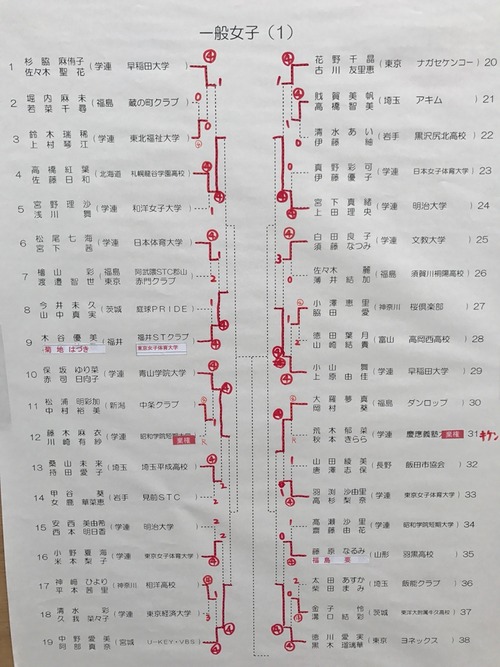 一般女子（1）
1 杉脇 麻侑子 佐々木 聖花 (学連 早稲田大学)
2 堀内 麻未 若菜 千尋 (福島 蔵の町クラブ)
3 鈴木 瑞稀 上村 琴江 (学連 東北福祉大学)
4 高橋 紅葉 佐藤 日和 (北海道 札幌龍谷学園高校)
5 宮野 理沙 浅川 舞 (学連 和洋女子大学)
6 松尾 七海 宮下 茜 (学連 日本体育大学)
7 檜山 彩 渡邉 智世 (福島 東京 阿武隈STC郡山 赤門クラブ)
8 今井 未久 山中 真実 (茨城 庭球PRIDE)
9 木谷 優美 菊地 はづき (福井 福井STクラブ 東京女子体育大学)
10 保坂 ゆり菜 赤司 日向子 (学連 青山学院大学)
11 松浦 明彩加 中村 裕美 (新潟 中条クラブ)
12 藤木 麻衣 川崎 有紗 (学連 昭和学院短期大学) 棄権 R
13 桑山 未来 持田 愛子 (埼玉 埼玉平成高校)
14 甲谷 葵 女鹿 華菜恵 (岩手 見前STC)
15 安西 美由希 西本 明日香 (学連 明治大学)
16 小野 夏海 米本 梨子 (学連 東京女子体育大学)
17 神﨑 ひより 平本 茜里 (神奈川 相洋高校)
18 清水 彩 久我 菜々子 (学連 東京経済大学)
19 中野 愛美 阿部 真奈 (宮城 U-KEY・VBS)
花野 千晶 古川 友里恵 (東京 ナガセケンコー) 20
賤賀 美帆 高橋 智美 (埼玉 アキム) 21
清水 あい 伊藤 紬 (岩手 黒沢尻北高校) 22
真野 彩可 伊藤 優子 (学連 日本女子体育大学) 23
宮下 真緒 上田 理央 (学連 明治大学) 24
白田 良子 須藤 なつみ (学連 文教大学) 25
佐々木 麗 薄井 結加 (福島 須賀川桐陽高校) 26
小澤 恵里 脇田 愛 (神奈川 桜倶楽部) 27
徳田 葉月 山崎 結貴 (富山 高岡西高校) 28
小山 舞 上原 由佳 (学連 早稲田大学) 29
大羅 夢真 岡村 葵 (福島 ダンロップ) 30
荒木 郁菜 秋本 きらら (学連 慶應義塾) 棄権 31 キケン
山田 綾美 唐澤 志保 (長野 飯田市協会) 32
羽渕 沙由里 高杉 梨奈 (学連 東京女子体育大学) 33
高瀬 沙里 齋藤 由花 (学連 昭和学院短期大学) 34
藤原 なるみ 福島 要 (山形 羽黒高校) 35
太田 あすか 柴田 まみ (埼玉 飯能クラブ) 36
金子 怜 溝口 結彩 (茨城 東洋大附属牛久高校) 37
徳川 愛実 黒木 瑠璃華 (東京 ヨネックス) 38